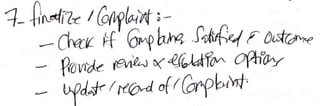 7- finalize / Complaint :-
- Check if Complainer Satisfied & outcome
- Provide review & escalation option
- update / record of / Complaint.